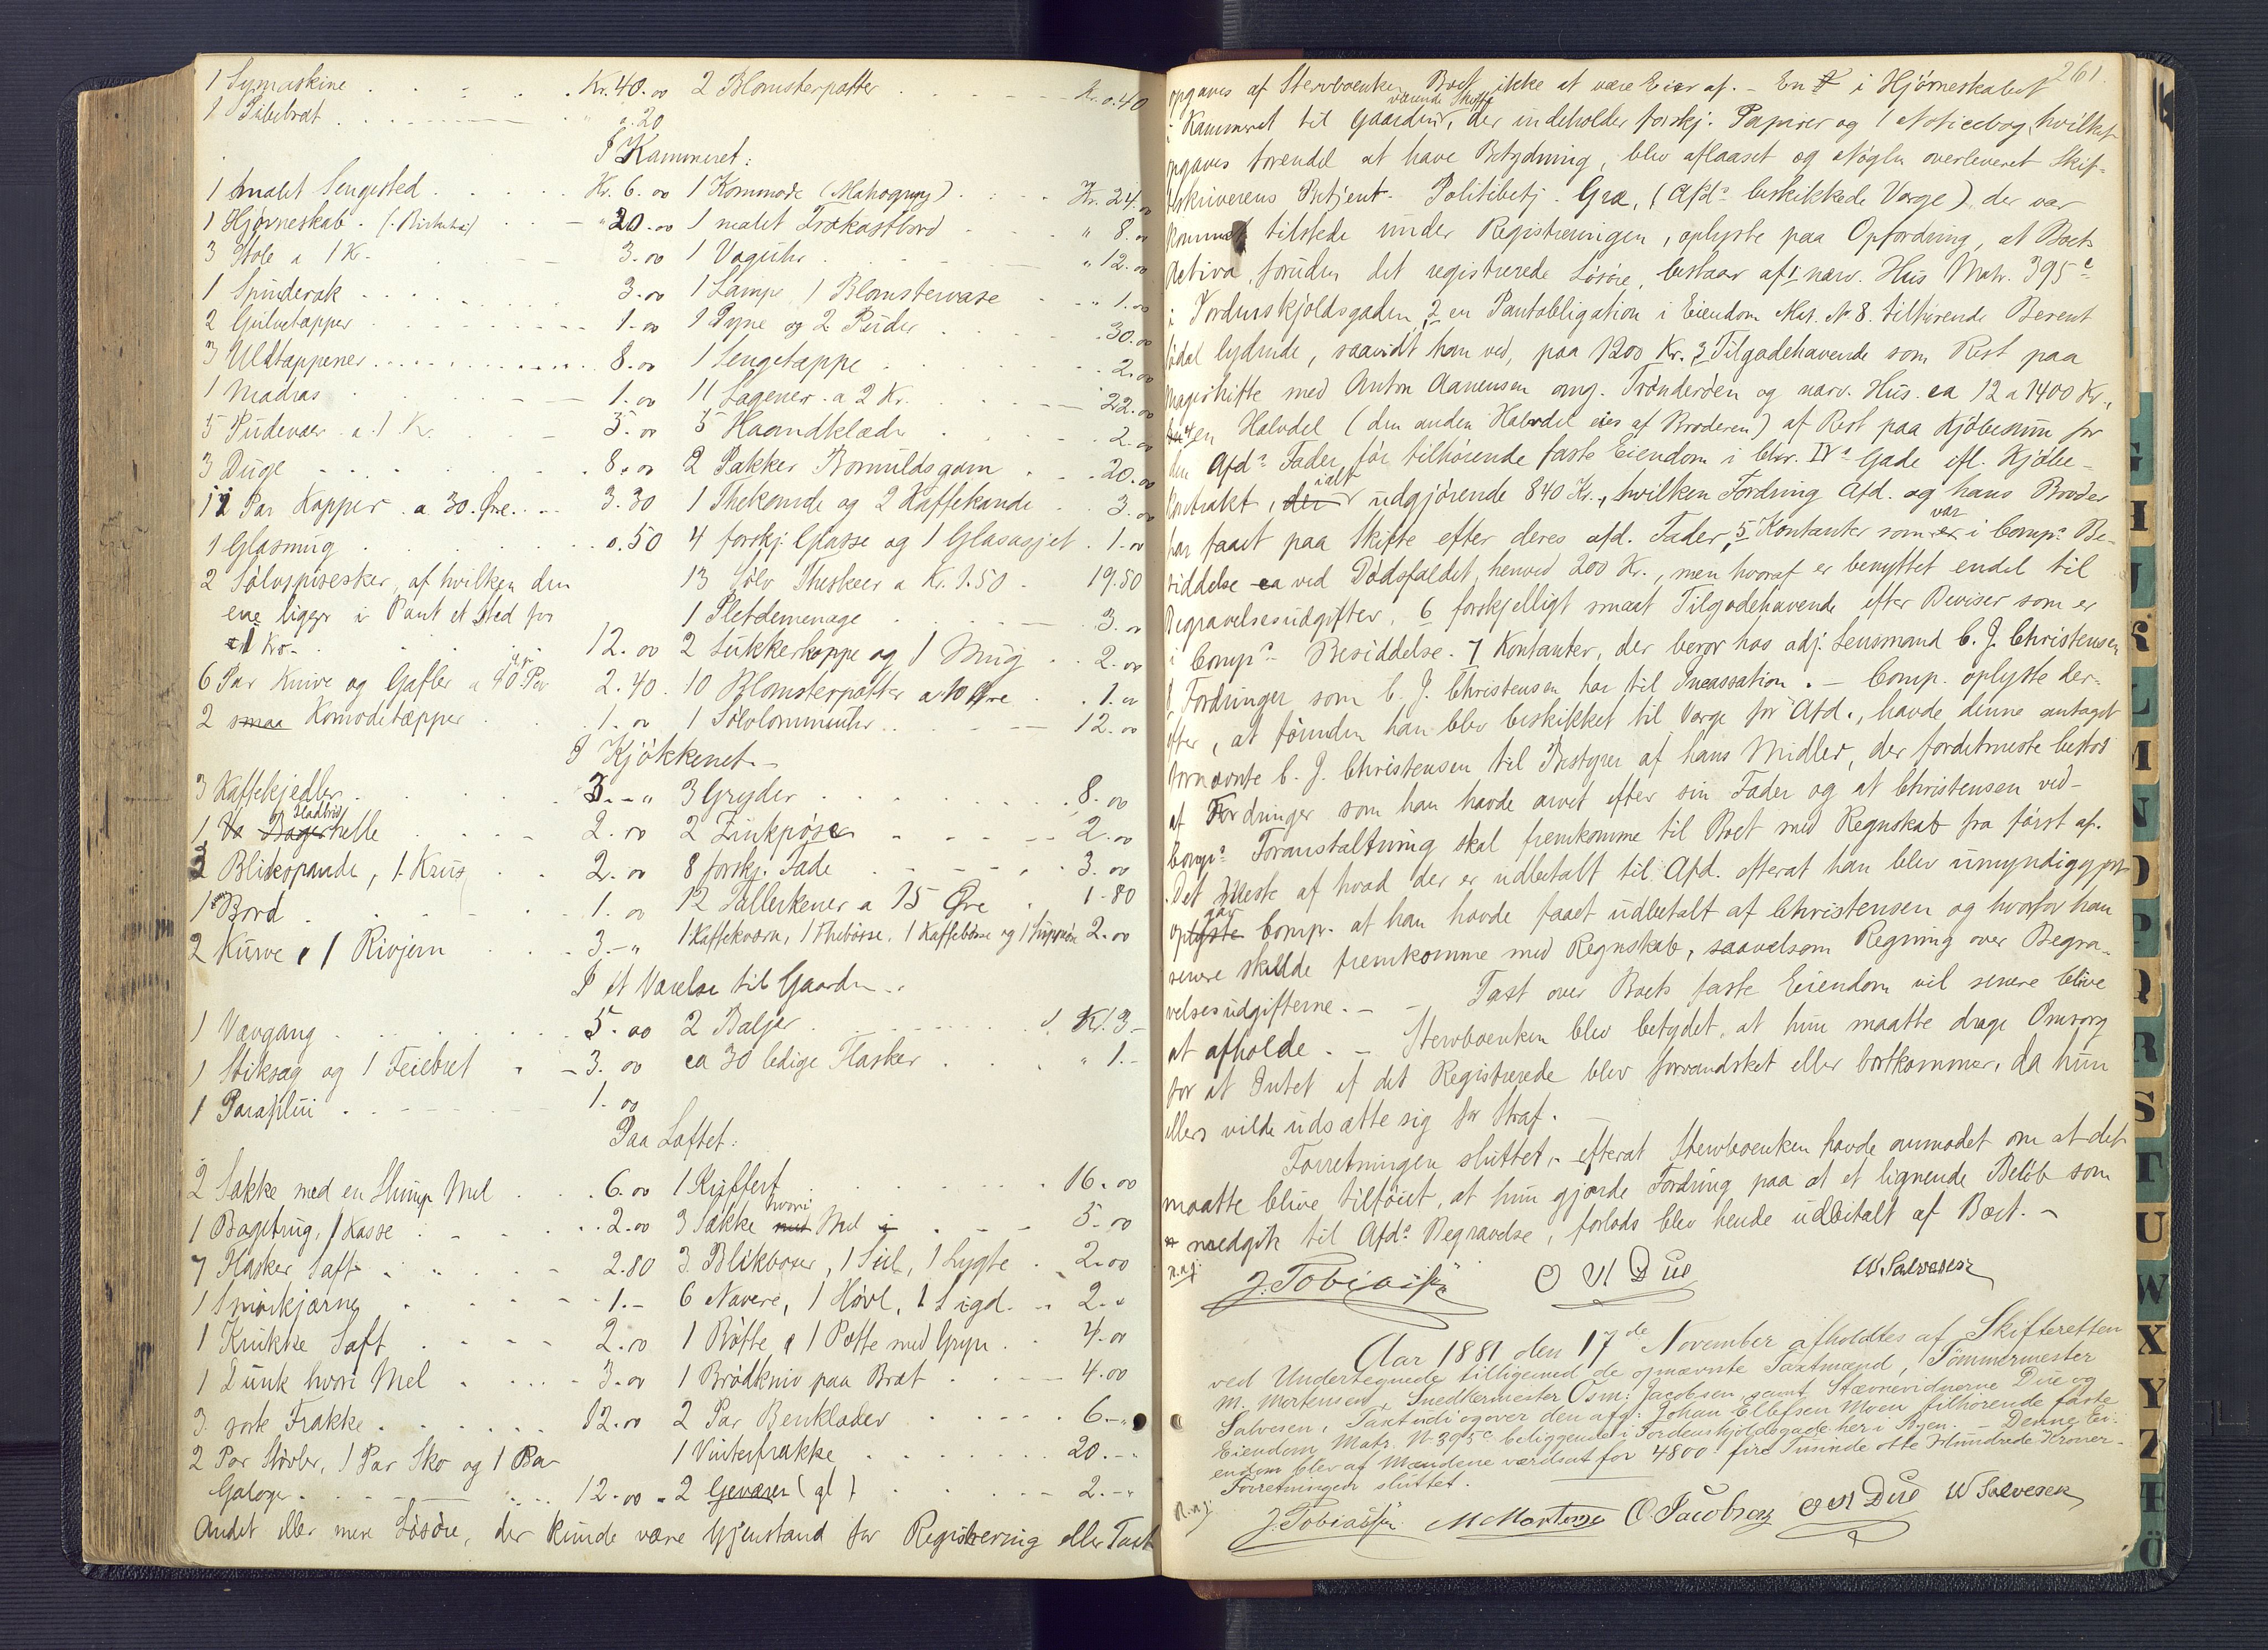 1 Symaskine . . . . . Kr. 40.00 2 Blomsterpotter . . . . Kr. 0.40
1 Pibebræt . . . . . " 0.20
I Kammeret:
1 malet Sengested . . . . Kr. 6.00 1 Kommode (Mahogny) . . . Kr. 24.00
1 Hjørneskab . . . " 20.00 1 malet Frokostbord . . " 8.00
3 Stole a 1 Kr. . . . 3.00 1 Væguhr . . . . " 12.00
1 Spinderok . . . . 3.00 1 Lampe, 1 Blomstervase . . " 1.00
2 Gulvtæpper . . . . 1.00 1 Dyne og 2 Puder . . . 30.00
3 Uldtæppener . . . . 8.00 1 Sengetæppe . . . . 2.00
1 Madras . . . . 1.00 11 Lagener a 2 Kr. . . . 22.00
5 Pudevaer a 1 Kr. . . . 5.00 5 Haandklæder . . . . 2.00
3 Duge . . . . . 8.00 2 Pakker Bomuldsgarn . . 20.00
11 Par Kopper a 30 Øre . . . 3.30 1 Thekande og 2 Kaffekande . . 3.00
1 Glasmug . . . . . 0.50 4 forskj. Glasse og 1 Glasasjet . 1.00
2 Sølvspiseskeer, af hvilken den 13 Sølv Theskeer a Kr. 1.50 - 19.50
ene ligger i Pant et sted for 1 Pletdemenage . . . . 3.00
1 Kr. . . . . 12.00 2 Sukkerkoppe og 1 Mug . . 2.00
6 Par Knive og Gafler a 40 Ør Par 2.40 10 Blomsterpotter a 10 Øre . 1.00
2 smaa Komodetæpper . . . 1.00 1 Sølvlommeuhr . . . . 12.00
I Kjøkkenet.-
3 Kaffekjedler . . . . 3.-" 3 Gryder . . . . . 8.00
1 helle . . . . 2.00 2 Zinkpøse . . . . 2.00
2 Blikspande, 1 Krus . . 2.00 8 forskj. Fade . . . . 3.00
1 Bord . . . . . 1.00 12 Tallerkener a 15 Øre . 1.80
2 Kurve, 1 Rivjern . . . 3.-" 1 Kaffekværn, 1 Thebøsse, 1 Kaffebøsse og 1 2.00
I et Værelse til Gaarden.-
1 Vævgang . . . . 5.00 2 Baljer . . . . . Kr. 3.-
1 Stiksag og 1 Feiebret . . 3.00 ca 30 ledige Flasker . . . " 1.-
1 Paraplui . . . . . 1.00
Paa Loftet:
2 Sække med en Slump Mel . . 6.00 1 Kuffert . . . . . 16.00
1 Bagetrug, 1 Kasse . . . 2.00 3 Sække hvori Mel . . . 5.00
7 Flasker Saft . . . . 2.80 3 Blikboxer, 1 Siel, 1 Lygte . 2.00
1 Smørkjærne . . . . 1.- 6 Navere, 1 Høvl, 1 Sigd . . 2."
1 Krukke Saft . . . . 2.00 1 Bøtte, 1 Potte med Gryn . 4.00
1 Dunk hvori Mel . . . . 3.00 1 Brødkniv paa Bræt . . . 4.00
3 sorte Frakke . . . . . 12.00 2 Par Benklæder . . . . 6.-"
2 Par Støvler, 1 Par Sko og 1 Par 1 Vinterfrakke . . . . 20.-"
Galoger . . . . . 12.00 2 Geværer (gl) . . . . 2.-"
Andet eller mere Løsøre, der kunde være Gjenstand for Registrering eller Taxt
261.
opgaves af Stervboenken Boet ikke at være Eier af. - En i Hjørneskabet
i Kammeret til Gaarden værende Skuffe, der indeholder forskj. Papirer og 1 Noticebog, hvilket
opgaves forendel at have Betydning, blev aflaaset og Nøglen overleveret Skif-
teskriverens Betjent. Politibetj. Græ, (Afds. beskikkede Værge) der var
kommet tilstede under Registreringen, oplyste paa Opfordring, at Boets
Activa foruden det registrerede Løsøre, bestaar af 1 nærv. Hus Matr. 395c
i Tordenskjoldsgaden, 2 en Pantobligation i Eiendom Mat. N. 8. tilhørende Berent
lydende, saavidt han ved, paa 1200 Kr. 3 Tilgodehavende som Rest paa
Mageskifte med Anton Aanensen ang. Trønderøen og nærv. Hus ca 12 a 1400 Kr.,
4 en Halvdel (den anden Halvdel eies af Broderen) af Rest paa Kjøbesum for
den Afds. Fader før tilhørende faste Eiendom i Chr. IVs Gade ifl. Kjøbe-
kontrakt, ialt udgjørende 840 Kr., hvilken Fordring Afd. og hans Broder
har faaet paa Skifte efter deres afd. Fader, 5 Kontanter som var i Comps. Be-
siddelse ved Dødsfaldet, henved 200 Kr., men hvoraf er benyttet endel til
Begravelsesudgifter, 6 forskjelligt smaat Tilgodehavende efter Beviser som er
i Comps. Besiddelse. 7 Kontanter, der beror hos adj. Lensmand C. J. Christensen
8 Fordringer som C. J. Christensen har til Incassation. - Comp. oplyste der-
efter, at førinden han blev beskikket til Værge for Afd., havde denne antaget
fornævnte C. J. Christensen til Bestyrer af hans Midler, der fordetmeste bestod
af Fordringer som han havde arvet efter sin Fader og at Christensen ved-
Comps. Foranstaltning skal fremkomme til Boet med Regnskab fra først af.
Det meste af hvad der er udbetalt til Afd. efterat han blev umyndiggjort
opgav Comp. at han havde faaet udbetalt af Christensen og hvorfor han
senere skulde fremkomme med Regnskab, saavelsom Regning over Begra-
velsesudgifterne. - - Taxt over Boets faste Eiendom vil senere blive
at afholde. - Stervboenken blev betydet, at hun maatte drage Omsorg
for at Intet af det Registrerede blev forvandsket eller bortkommer, da hun
ellers vilde udsætte sig for Straf. -
Forretningen sluttet, efterat Stervboenken havde anmodet om at det
maatte blive tilføiet, at hun gjorde Fordring paa at et lignende Beløb som
medgik til Afds. Begravelse, forlods blev hende udbetalt af Boet. -
J. Tobiassen O N Due W. Salvesen
Aar 1881 den 17de November afholdtes af Skifteretten
ved Undertegnede tilligemed de opnævnte Taxtmænd, Tømmermester
M. Mortensen, Snedkermester Osm: Jacobsen, samt Stævnevidnerne Due og
Salvesen, Taxt udi og over den afd: Johan Ellefsen Moen tilhørende faste
Eiendom Matr. N. 395c beliggende i Tordenskjoldsgade her i Byen. - Denne Ei-
endom blev af Mændene værdsat for 4800 fire Tusinde otte Hundrede Kroner -
Forretningen sluttet.
J. Tobiassen M Mortensen O. Jacobsen O N Due W Salvesen
G
H
I
J
K
L
M
N
O
P
Q
R
S
T
U
W
X
Y
Z
Æ
Ö